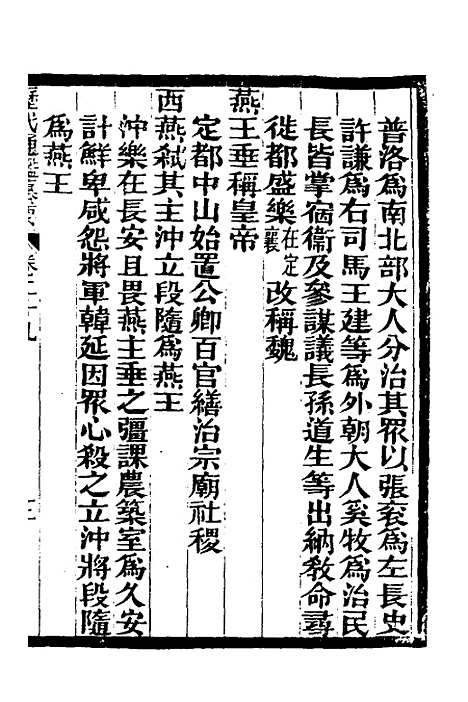 普洛爲南北部大人分治其眾以張衮爲左長史
許謙爲右司馬王建等爲外朝大人奚牧爲治民
長皆掌宿衞及參謀議長孫道生等出納敎命尋
徙都盛樂在定襄改稱魏
燕王垂稱皇帝
定都中山始置公卿百官繕治宗廟社稷
西燕弑其主沖立段隨爲燕王
沖樂在長安且畏燕主垂之彊課農築室爲久安
計鮮卑咸怨將軍韓延因眾心殺之立沖將段隨
爲燕王
歷代通鑑
卷二十九